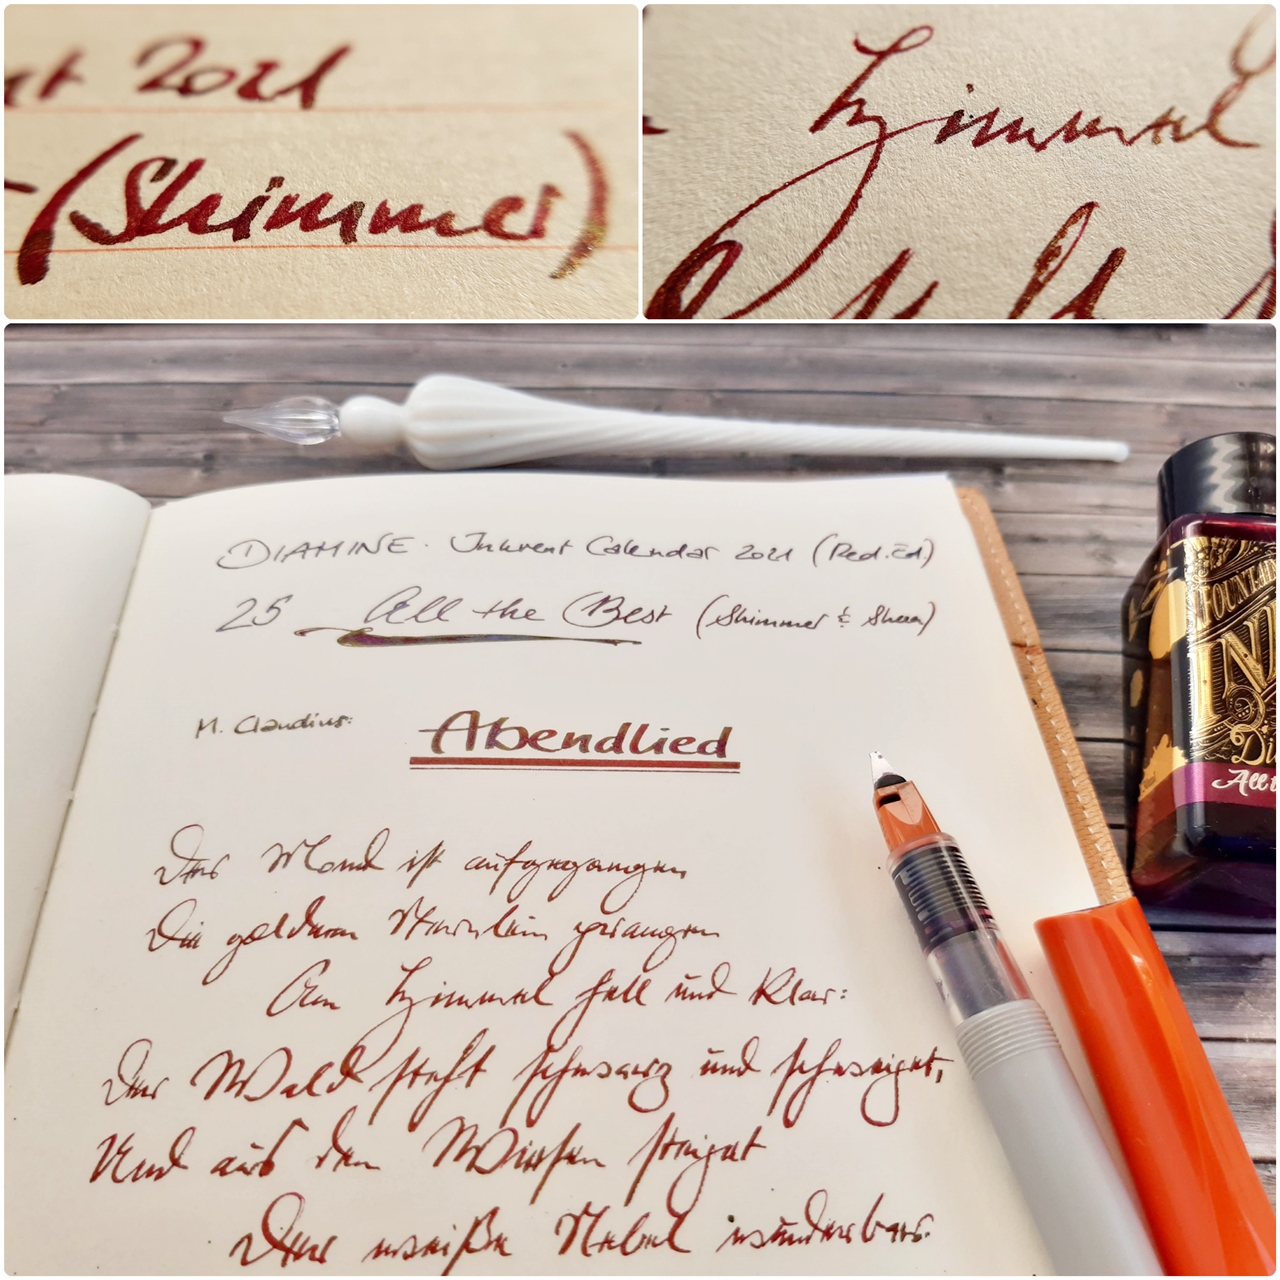 nt 2021
(Shimmer)
Himmel
DIAMINE. Inkvent Calendar 2021 (Red. Ed.)
25 All the Best (Shimmer & Sheen)
M. Claudius:
Abendlied
Der Mond ist aufgegangen
Die goldnen Sternlein prangen
Am Himmel hell und klar:
Der Wald steht schwarz und schweiget,
Und aus den Wiesen steiget
Der weiße Nebel wunderbar.
FOUNTAIN
INK
Di
All t